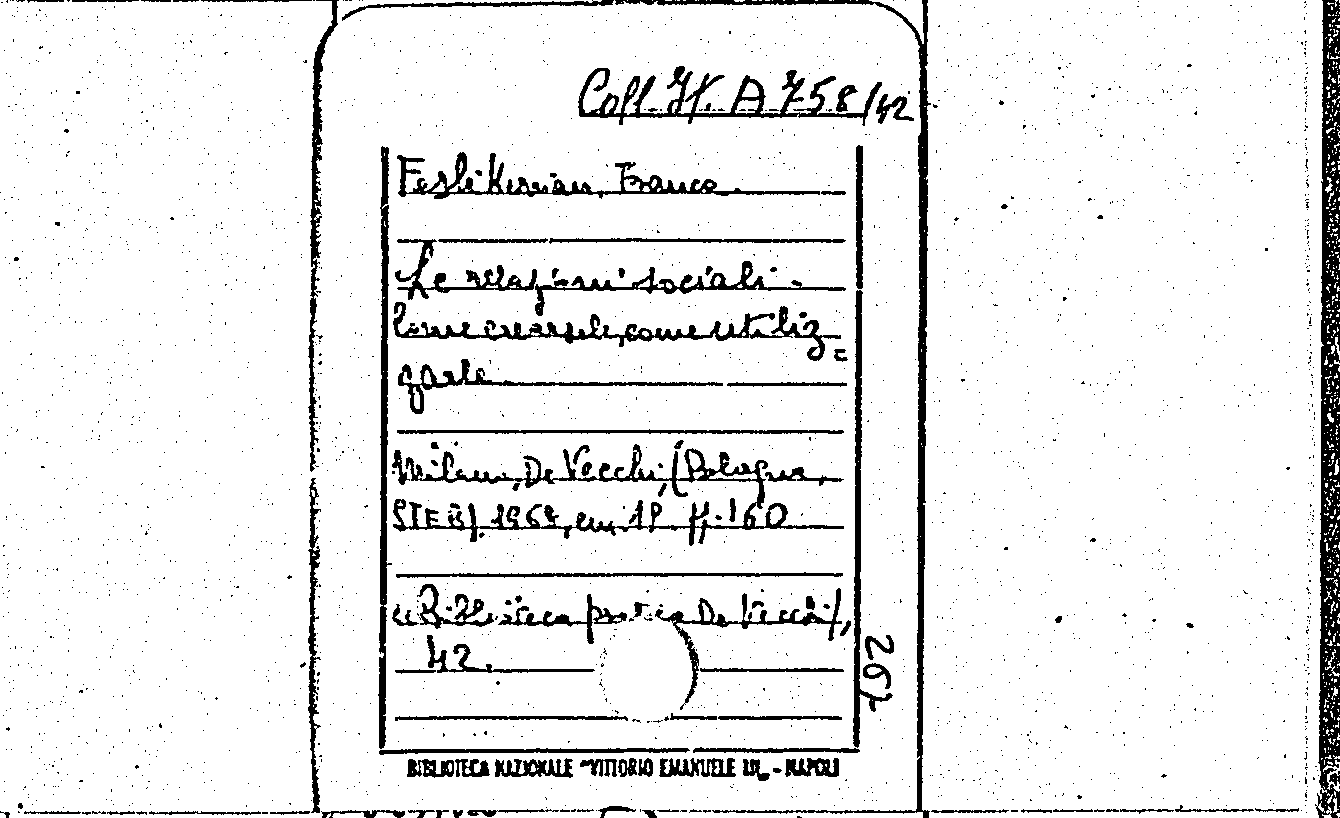 Coll. It. A 758/42
Feslikenian, Franco.
Le relazioni sociali -
Come crearsele, come utiliz=
zarle
Milano, De Vecchi, (Bologna,
STEB), 1967, in 1p. 160
"Biblioteca pratica De Vecchi",
42.
BIBLIOTECA NAZIONALE "VITTORIO EMANUELE III" - NAPOLI